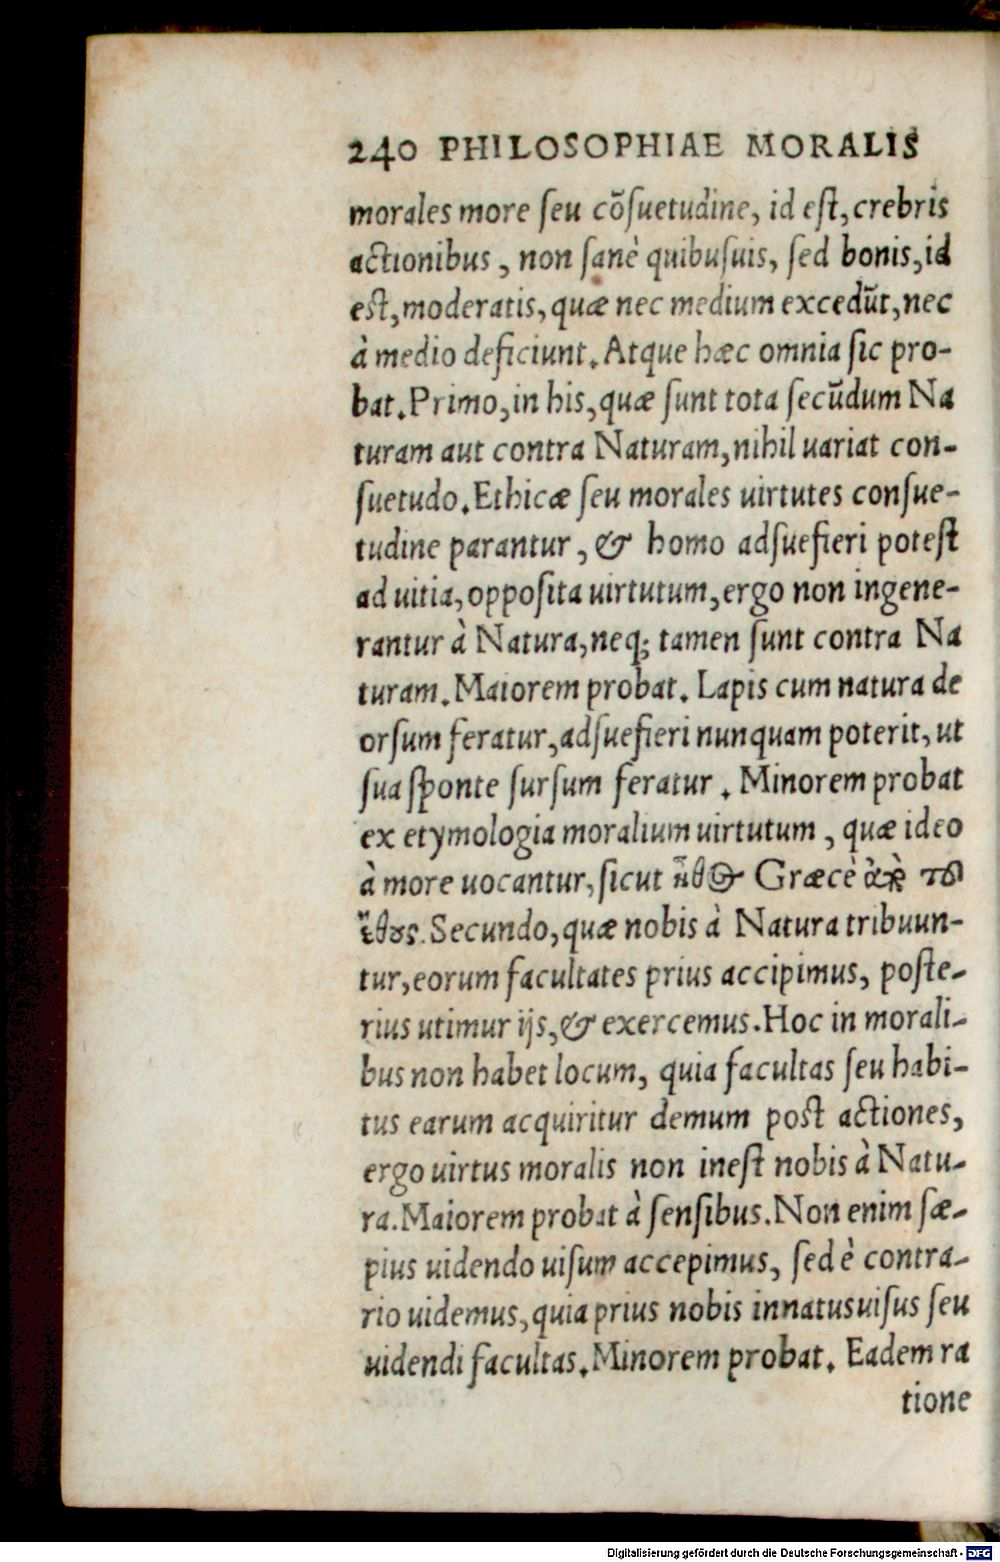 240 PHILOSOPHIAE MORALIS
morales more ſeu cõſuetudine, id eſt, crebris
actionibus, non ſanè quibuſuis, ſed bonis, id
eſt, moderatis, quæ nec medium excedũt, nec
à medio deficiunt. Atque hæc omnia ſic pro-
bat. Primo, in his, quæ ſunt tota ſecũdum Na
turam aut contra Naturam, nihil uariat con-
ſuetudo. Ethicæ ſeu morales uirtutes conſue-
tudine parantur, & homo adſuefieri poteſt
ad uitia, oppoſita uirtutum, ergo non ingene-
rantur à Natura, neq; tamen ſunt contra Na
turam. Maiorem probat. Lapis cum natura de
orſum feratur, adſuefieri nunquam poterit, ut
ſua ſponte ſurſum feratur. Minorem probat
ex etymologia moralium uirtutum, quæ ideo
à more uocantur, ſicut Græcè
Secundo, quæ nobis à Natura tribuun-
tur, eorum facultates prius accipimus, poſte-
rius utimur ijs, & exercemus. Hoc in morali-
bus non habet locum, quia facultas ſeu habi-
tus earum acquiritur demum poſt actiones,
ergo uirtus moralis non ineſt nobis à Natu-
ra. Maiorem probat à ſenſibus. Non enim ſæ-
pius uidendo uiſum accepimus, ſed è contra-
rio uidemus, quia prius nobis innatus uiſus ſeu
uidendi facultas. Minorem probat. Eadem ra
tione
Digitalisierung gefördert durch die Deutsche Forschungsgemeinschaft - DFG